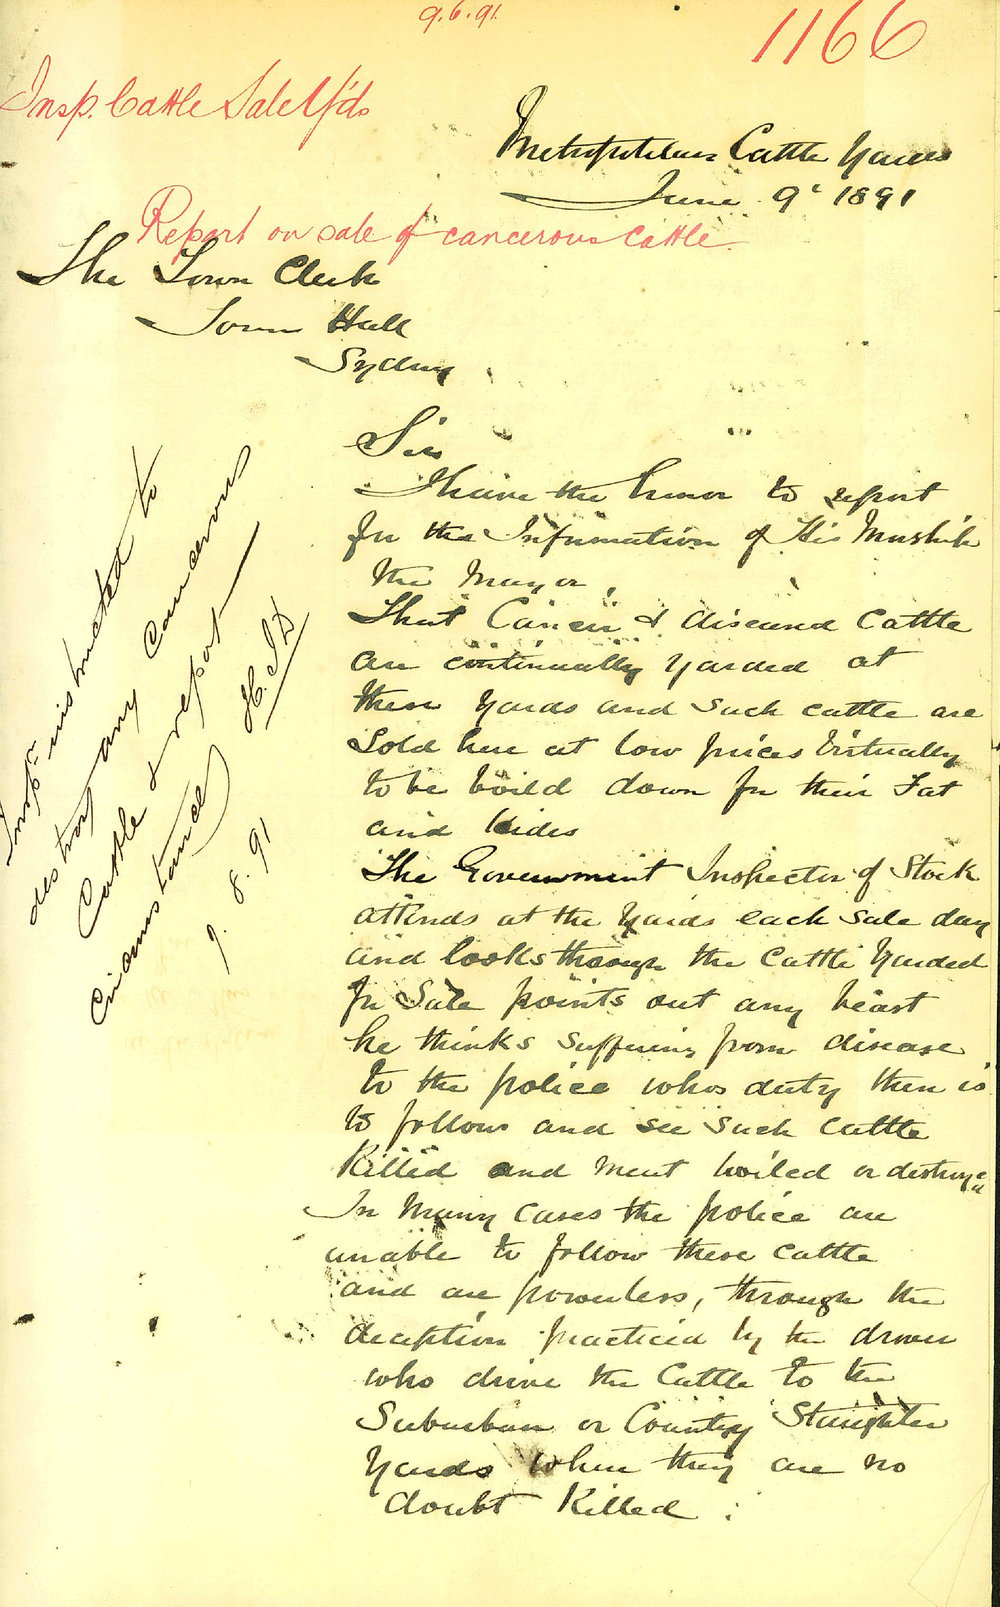 9.6.91.
1166
Insp. Cattle Sale Y'ds
Metropolitan Cattle Yards
June 9th 1891
Report on sale of cancerous cattle
The Town Clerk
Town Hall
Sydney
Sir
I have the honor to report
for the Information of His Worship
the Mayor,
That Cancer & diseased Cattle
are continually yarded at
these Yards and such cattle are
Sold here at low prices virtually
to be boild down for their Fat
and hides
The Government Inspector of Stock
attends at the Yards each sale day
and looks through the Cattle Yarded
for Sale points out any beast
he thinks suffering from disease
to the police whos duty then is
to follow and see such cattle
Killed and meat boiled or destroyed
In Many cases the police are
unable to follow these cattle
and are powerless, through the
deception practiced by the drover
who drive the Cattle to the
Suburban or Country Slaughter
Yards when they are no
doubt Killed.
Inspr. instructed to
destroy any Cancerous
Cattle & report
circumstances H.J.D
9.8.91